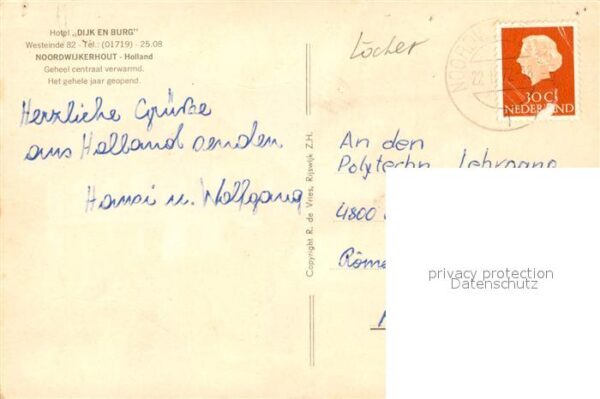 Hotel „DIJK EN BURG"
Westeinde 82 - Tel.: (01719) - 25.08
NOORDWIJKERHOUT - Holland
Geheel centraal verwarmd.
Het gehele jaar geopend.
Herzliche Grüße
aus Holland senden
Hansi u. Wolfgang
Copyright R. de Vries, Rijswijk Z.H.
Löcher
30 C
NEDERLAND
An den
Polytechn. Lehrgang
4800
privacy protection
Datenschutz